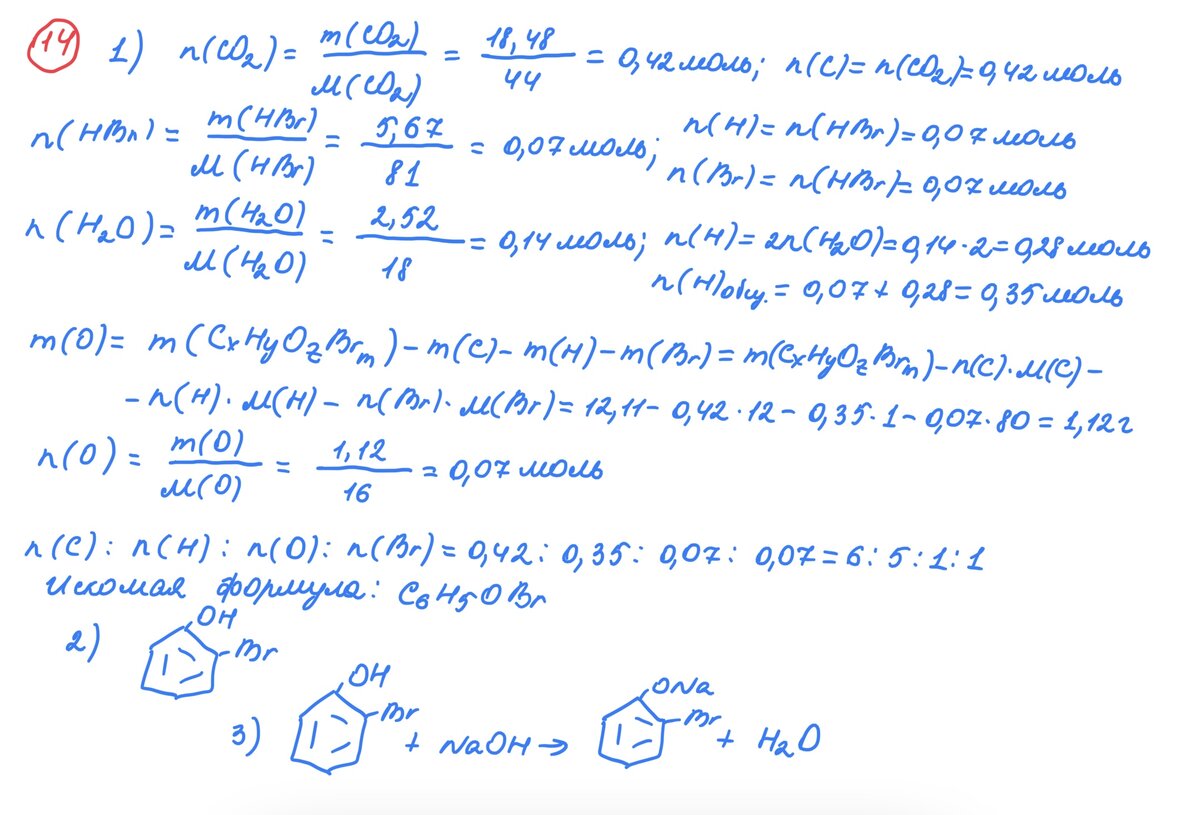 14 1) n(CO₂) = m(CO₂)/M(CO₂) = 18,48/44 = 0,42 моль; n(C) = n(CO₂) = 0,42 моль
n(HBr) = m(HBr)/M(HBr) = 5,67/81 = 0,07 моль; n(H) = n(HBr) = 0,07 моль
n(Br) = n(HBr) = 0,07 моль
n(H₂O) = m(H₂O)/M(H₂O) = 2,52/18 = 0,14 моль; n(H) = 2n(H₂O) = 0,14·2 = 0,28 моль
n(H)общ. = 0,07 + 0,28 = 0,35 моль
m(O) = m(CxHyOzBrm) – m(C) – m(H) – m(Br) = m(CxHyOzBrm) – n(C)·M(C) –
– n(H)·M(H) – n(Br)·M(Br) = 12,11 – 0,42·12 – 0,35·1 – 0,07·80 = 1,12 г
n(O) = m(O)/M(O) = 1,12/16 = 0,07 моль
n(C) : n(H) : n(O) : n(Br) = 0,42 : 0,35 : 0,07 : 0,07 = 6 : 5 : 1 : 1
Искомая формула: C₆H₅OBr
2) OH
Br
3) OH Br + NaOH → ONa Br + H₂O